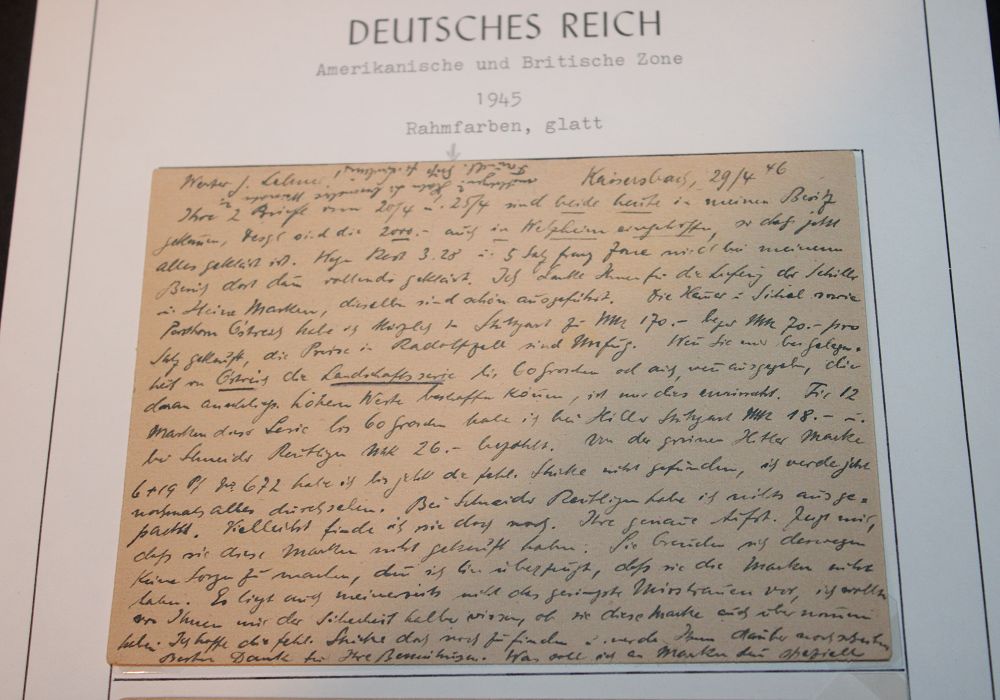 DEUTSCHES REICH
Amerikanische und Britische Zone
1945
Rahmfarben, glatt
Kaisersbach, 29/4 46
Werter J.
Ihre 2 Briefe vom 20/4 u. 25/4 sind beide heute in meinen Besitz
gekommen, desgl. sind die 2000.- auch in Welzheim eingetroffen, so daß jetzt
alles geklärt ist. Rest 3.28 u. 5 Satz franz. Zone wird bei meinem
Besuch dort dann vollends geklärt. Ich danke Ihnen für die Lieferg der Schiller
u. Heine Marken, dieselben sind schön ausgeführt. Die sowie
Österreich habe ich in Stuttgart zu MK 170.- bezw MK 70.- pro
Satz gekauft, die Preise in Radolfzell sind Unfug. Wenn Sie mir bei Gelegen-
heit von Österreich die Landschaftsserie bis 60 Groschen od auch, wenn ausgegeben, die
daran anschließ. höheren Werte beschaffen können, ist mir dies erwünscht. Für 12
Marken dieser Serie bis 60 Groschen habe ich bei Hiller Stuttgart MK 18.- u.
bei Schneider Reutlingen MK 26.- bezahlt. Von der grünen Hitler Marke
6+19 Pf No 672 habe ich bis jetzt die fehl. Stücke nicht gefunden, ich werde jetzt
nochmals alles durchsehen. Bei Schneider Reutlingen habe ich nichts ausge-
packt. Vielleicht finde ich sie doch noch. Ihre genaue Aufst. zeigt mir,
daß sie diese Marken nicht gekauft haben. Sie brauchen sich deswegen
keine Sorgen zu machen, denn ich bin überzeugt, daß sie die Marken nicht
haben. Es liegt auch meinerseits nicht das geringste Misstrauen vor, ich wollte
von Ihnen nur der Sicherheit halber wissen, ob sie diese Marke auch übernommen
haben. Ich hoffe die fehl. Stücke doch noch zu finden u. werde Ihnen darüber noch schreiben
Besten Dank für Ihre Bemühungen. Was soll ich an Marken den speziell